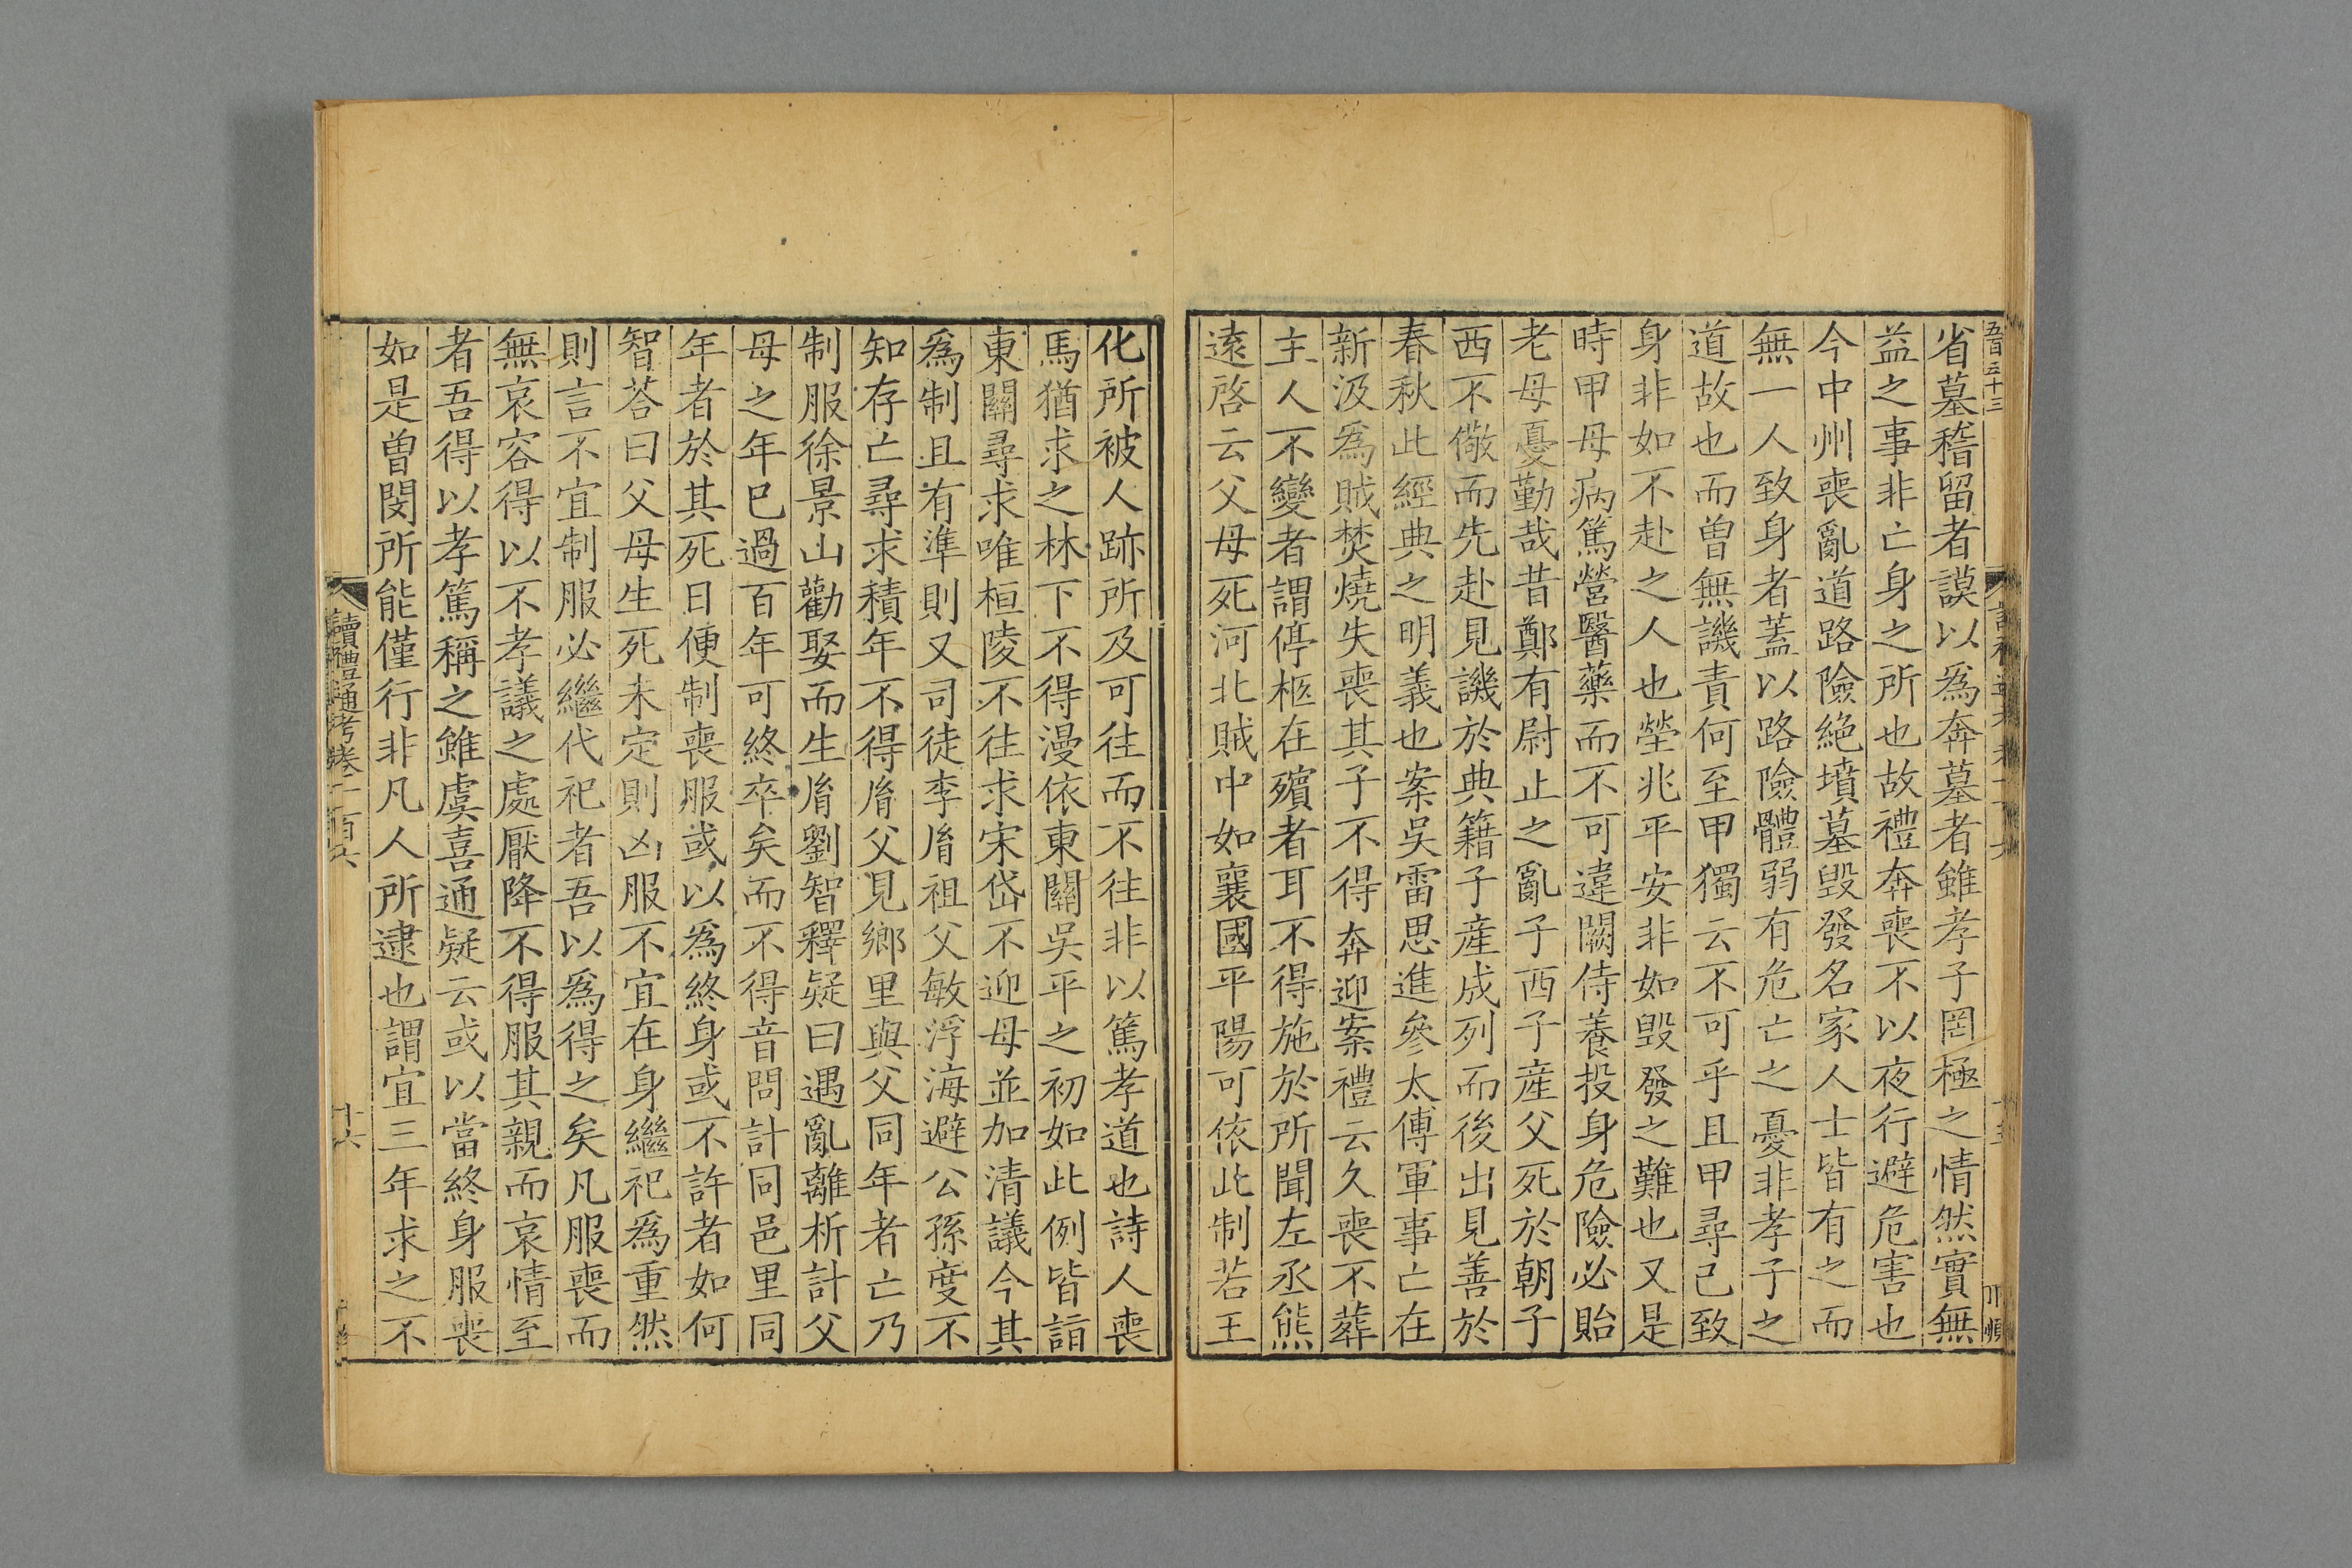 五百三十三
省墓稽留者謨以爲奔墓者雖孝子罔極之情然實無
益之事非亡身之所也故禮奔喪不以夜行避危害也
今中州喪亂道路險絕墳墓毀發名家人士皆有之而
無一人致身者蓋以路險體弱有危亡之憂非孝子之
道故也而曽無譏責何至甲獨云不可乎且甲尋己致
身非如不赴之人也塋兆平安非如毀發之難也又是
時甲母病篤營醫藥而不可違闕侍養投身危險必貽
老母憂勤哉昔鄭有尉止之亂子西子産父死於朝子
西不儆而先赴見譏於典籍子産成列而後出見善於
春秋此經典之明義也案吳雷思進參太傅軍事亡在
新汲爲賊焚燒失喪其子不得奔迎案禮云久喪不葬
主人不變者謂停柩在殯者耳不得施於所聞左丞熊
遠啓云父母死河北賊中如襄國平陽可依此制若王
化所被人跡所及可往而不往非以篤孝道也詩人喪
馬猶求之林下不得漫依東關吳平之初如此例皆詣
東關尋求唯桓陵不往求宋岱不迎母並加清議今其
爲制且有準則又司徒李胤祖父敏浮海避公孫度不
知存亡尋求積年不得胤父見鄉里與父同年者亡乃
制服徐景山勸娶而生胤劉智釋疑曰遇亂離析計父
母之年已過百年可終卒矣而不得音問計同邑里同
年者於其死日便制喪服或以爲終身或不許者如何
智荅曰父母生死未定則凶服不宜在身繼祀爲重然
則言不宜制服必繼代祀者吾以爲得之矣凡服喪而
無哀容得以不孝議之處厭降不得服其親而哀情至
者吾得以孝篤稱之雖虞喜通疑云或以當終身服喪
如是曽閔所能僅行非凡人所逮也謂宜三年求之不
讀禮通考卷一百六
十六